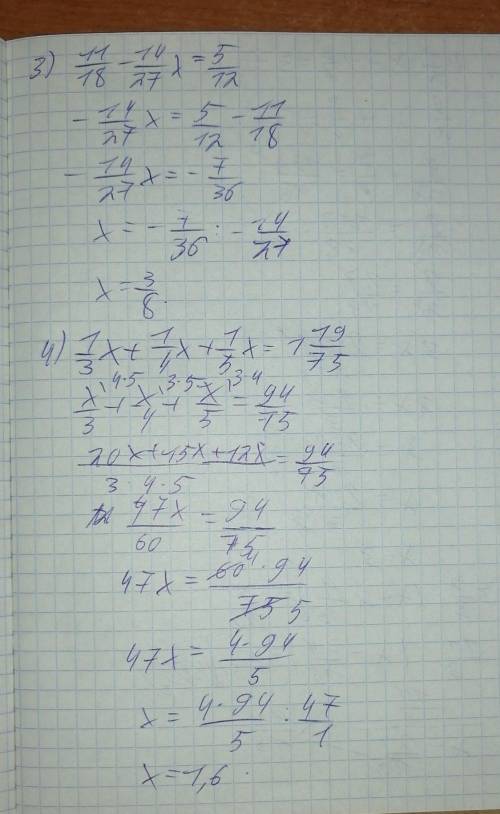 3) 11/18 - 14/27 x = 5/12
- 14/27 x = 5/12 - 11/18
- 14/27 x = - 7/36
x = - 7/36 : - 14/27
x = 3/8.
4) 1/3 x + 1/4 x + 1/5 x = 1 19/75
x/3 ^4·5 + x/4 ^3·5 + x/5 ^3·4 = 94/75
20x + 15x + 12x / 3 · 4 · 5 = 94/75
47x/60 = 94/75
47x = 60 4 · 94 / 75 5
47x = 4 · 94 / 5
x = 4 · 94 / 5 : 47/1
x = 1,6.